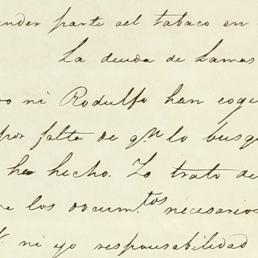 ender parte del tabaco en
La deuda de Lamas
o ni Rodulfo han coge
por falta de qn lo busq
ha hecho. Lo trato de
e los docum.tos necesarios
ni yo responsabilidad